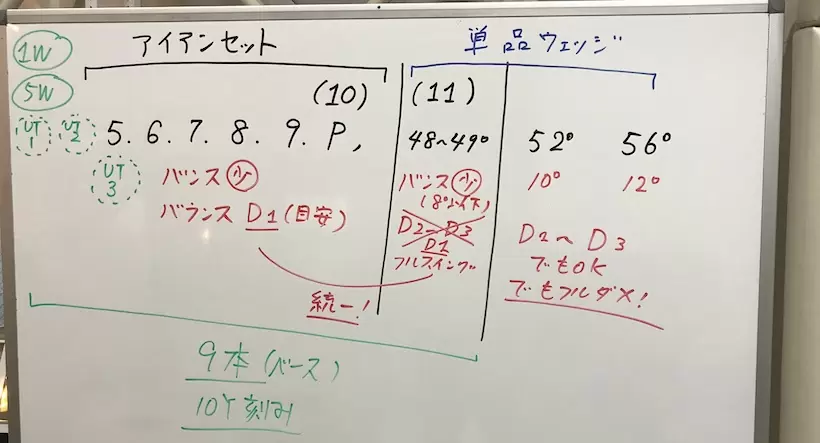 1W
アイアンセット
単品ウェッジ
5W
(10)
(11)
UT1
UT2
5. 6. 7. 8. 9. P,
48~49°
52°
56°
UT3
バンス 少
バンス 少
(8°以下)
10°
12°
バランス D1 (目安)
D2~D3
D1
フルスイング
D2~D3
でもOK
でもフルダメ!
統一!
9本 (ベース)
10Y刻み